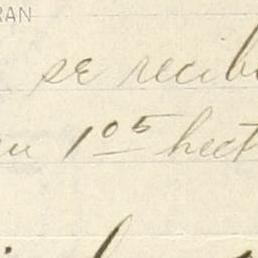 RAN
se recib
en 105 hect